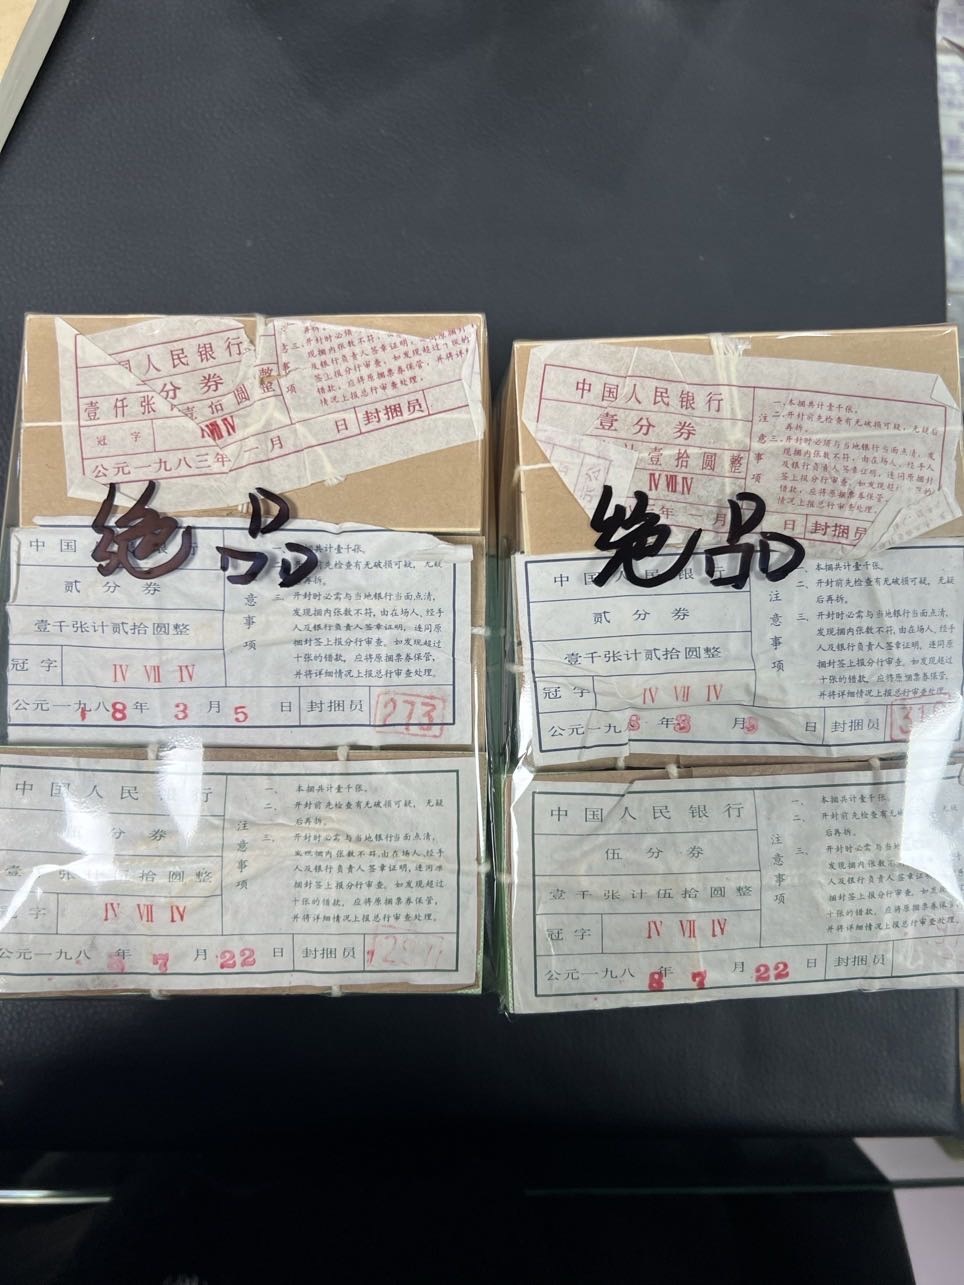 国人民银行
分券
壹仟张
壹佰圆整
冠字
公元一九八三年一月 日
封捆员
再拆。
三、开封时必须
现捆内张数不符,
及银行负责人签章证明,
签上报分行审查。如发现超过
借款,应将原捆票券保管,并将详
情况上报总行审查处理。
绝品
中国人民银行
贰分券
壹千张计贰拾圆整
冠字 IV VII IV
公元一九八8年3月5日 封捆员 273
注意事项
一、本捆共计壹千张。
二、开封前先检查有无破损可疑,无疑
后再拆。
三、开封时必需与当地银行当面点清,
发现捆内张数不符,由在场人、经手
人及银行负责人签章证明,连同原
捆封签上报分行审查。如发现超过
十张的借款,应将原捆票券保管,
并将详细情况上报总行审查处理。
中国人民银行
伍分券
壹千张计伍拾圆整
冠字 IV VII IV
公元一九八 年7月22日 封捆员
注意事项
一、本捆共计壹千张。
二、开封前先检查有无破损可疑,无疑
后再拆。
三、开封时必需与当地银行当面点清,
发现捆内张数不符,由在场人、经手
人及银行负责人签章证明,连同原
捆封签上报分行审查。如发现超过
十张的借款,应将原捆票券保管,
并将详细情况上报总行审查处理。
中国人民银行
壹分券
壹拾圆整
IV VII IV
年一月 日 封捆员
注意事项
一、本捆共计壹千张。
二、开封前先检查有无破损可疑,无疑后
再拆。
三、开封时必须与当地银行点清,发
现捆内张数不符,由在场人、经手人
及银行负责人签章证明,连同原捆封
签上报分行审查。如发现超
借款,应将原捆票券保管,
情况上报总行审查处理。
绝品
中国人民银行
贰分券
壹千张计贰拾圆整
冠字 IV VII IV
公元一九8年3月5日 封捆员
注意事项
一、本捆共计壹千张。
二、开封前先检查有无破损可疑,无疑
后再拆。
三、开封时必需与当地银行当面点清,
发现捆内张数不符,由在场人、经手
人及银行负责人签章证明,连同原
捆封签上报分行审查。如发现超过
十张的借款,应将原捆票券保管,
并将详细情况上报总行审查处理。
中国人民银行
伍分券
壹千张计伍拾圆整
冠字 IV VII IV
公元一九八8年7月22日 封捆员
注意事项
一、本捆共计壹千张。
二、开封前先检查有无破损
后再拆。
三、开封时必需与当地银行当面点清,
发现捆内张数不符,由在场人、经手
人及银行负责人签章证明,连同原
捆封签上报分行审查。如发现超过
十张的借款,应将原捆票券保管,
并将详细情况上报总行审查处理。